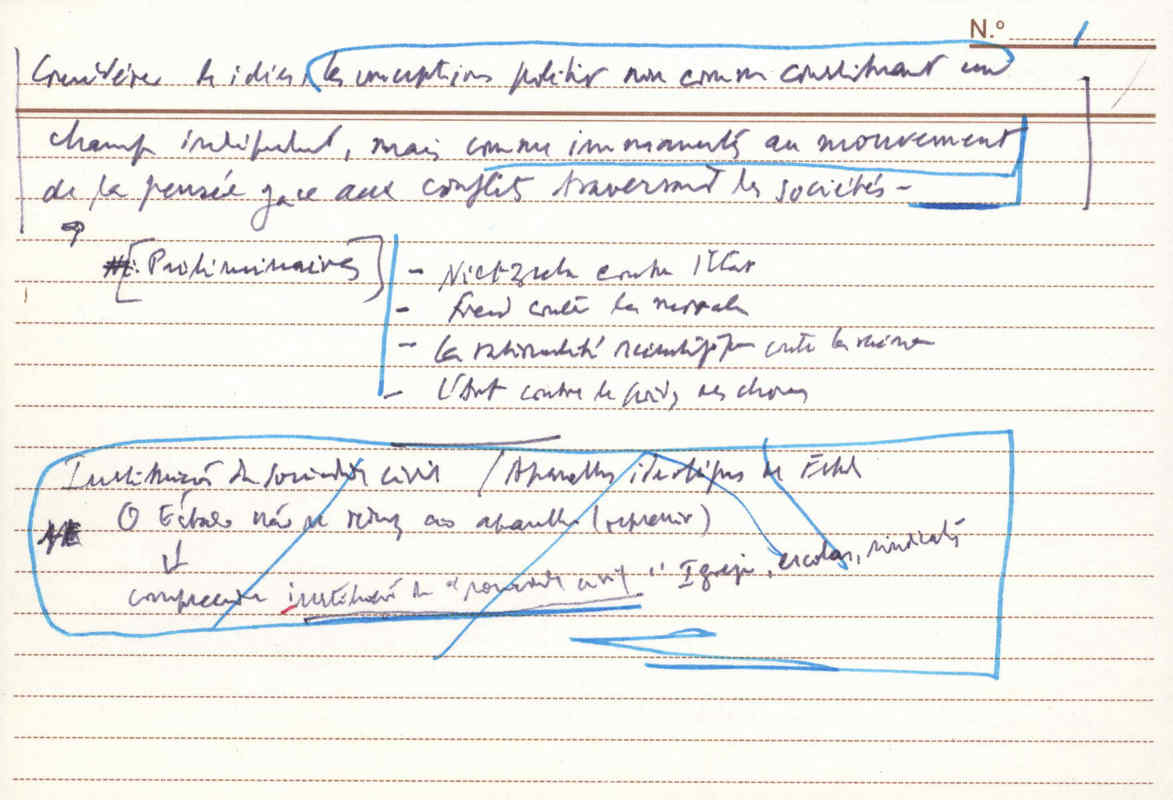 N.º 1
Considérer les idées, les conceptions politiques non comme constituant un
champ indépendant, mais comme immanentes au mouvement
de la pensée face aux conflits traversant les sociétés -
[Préliminaires] - Nietzsche contre l'Etat
- Freud contre la morale
- La rationalité scientifique contre la
- L'Art contre le poids des choses
Instituições da sociedade civil / Aparelhos ideológicos de Estado
O Estado não se reduz ao aparelho (repressivo)
↓
compreende instituições da "sociedade civil" Igreja, escolas, sindicatos